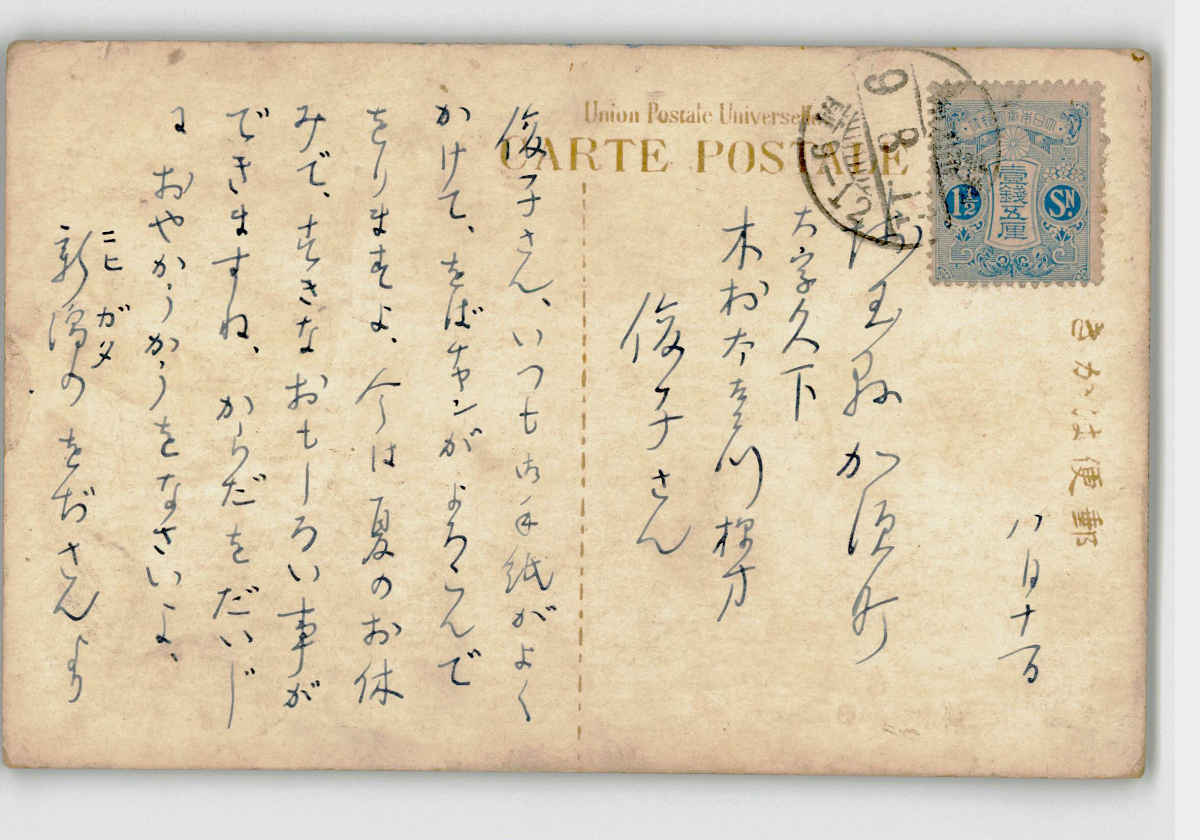 Union Postale Universelle
CARTE POSTALE
壹錢五厘
1½
SN
9.8.1
きかは便郵
八月十一日
玉縣加須町
大字久下
木村太喜川様方
俊子さん
俊子さん、いつも御手紙がよく
かけて、をばチャンがよろこんで
をりますよ、今は夏のお休
みで、すきなおもしろい事が
できますね、からだをだいじ
に おやかうかうをなさいよ、
ニヒ ガタ
新潟の をぢさんより